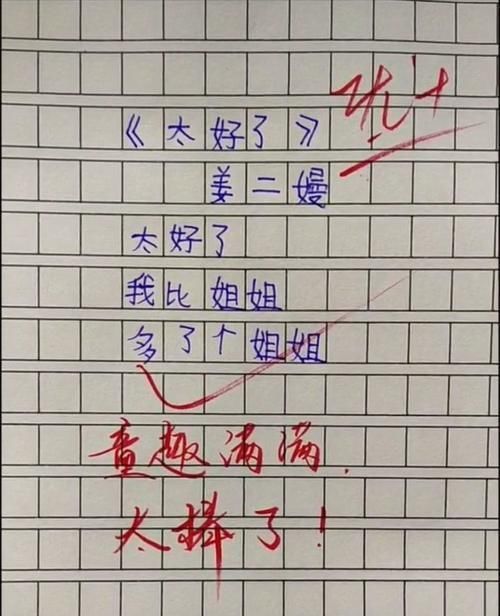 优+
《太好了》
姜二嫚
太好了
我比姐姐
多了个姐姐
童趣满满.
太棒了!